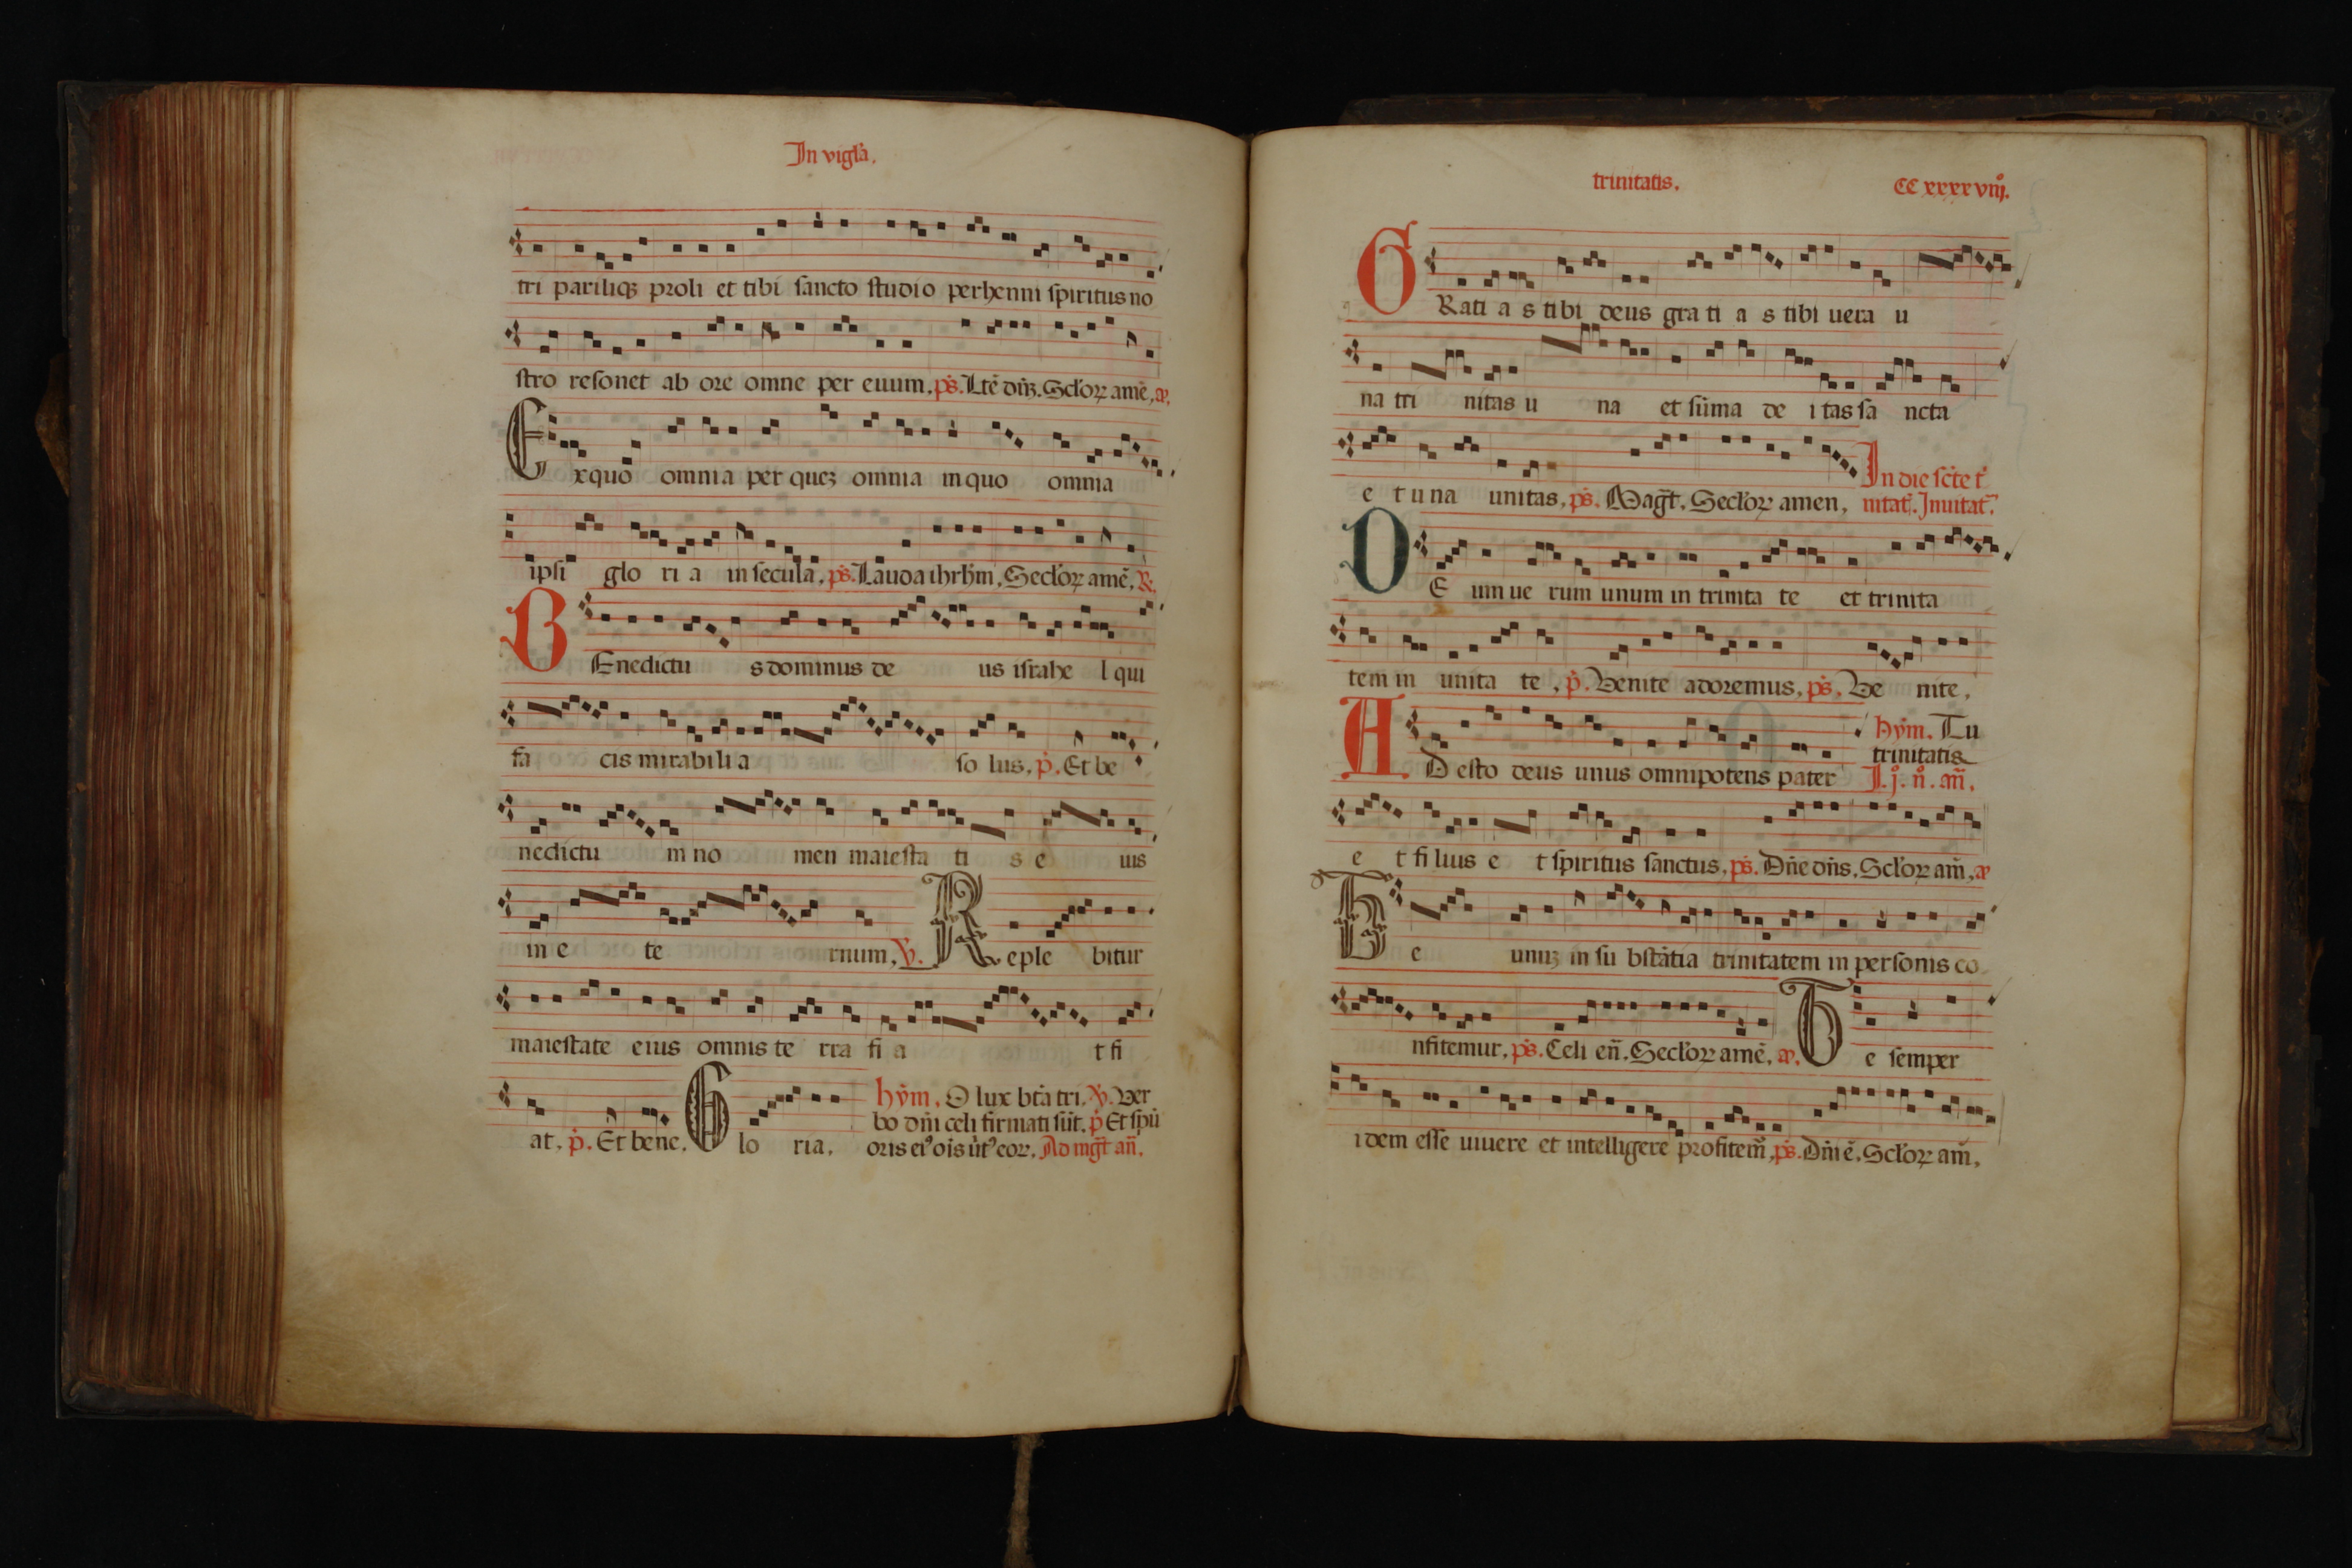 In vigl'a.
tri pariliq3 proli et tibi sancto studio perhenni spiritus no
stro resonet ab ore omne per euum, ps. Lte dn3. Sclor amē, a.
Exquo omnia per que3 omnia in quo omnia
ipsi glo ri a in secula, ps. Lauda ihrlm, Seclor amē, R.
BEnedictu s dominus de us israhe l qui
fa cis mirabili a so lus, p. Et be
nedictu m no men maiesta ti s e ius
in e te rnum, V. Reple bitur
maiestate eius omnis te rra fi a t fi
at, p. Et bene. Glo ria.
hym. O lux bta tri. V. Ver
bo dni celi firmati sūt. p Et spū
oris ei' ois ūt' eor. Ad mgt an.
trinitatis.
CC xxxx viij.
GRati a s tibi deus gra ti a s tibi uera u
na tri nitas u na et sūma de i tas sa ncta
e t u na unitas, ps. Magt. Seclor amen,
In die scte t'
nitat. Inuitat.
DE um ue rum unum in trinita te et trinita
tem in unita te, p. Venite adoremus, ps. Ve nite,
hym. Tu
trinitatis
ADesto deus unus omnipotens pater
I. j. n. an.
e t fi lius e t spiritus sanctus, ps. Dne dns. Sclor am, a
Te unu3 in su bstātia trinitatem in personis co
nfitemur, ps. Celi en. Seclor amē, a. Te semper
idem esse uiuere et intelligere profitem, ps. Dni ē. Sclor am,